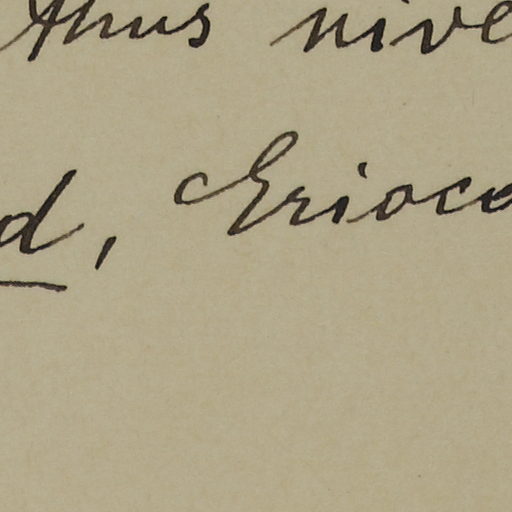 thus nive
d, Erioca